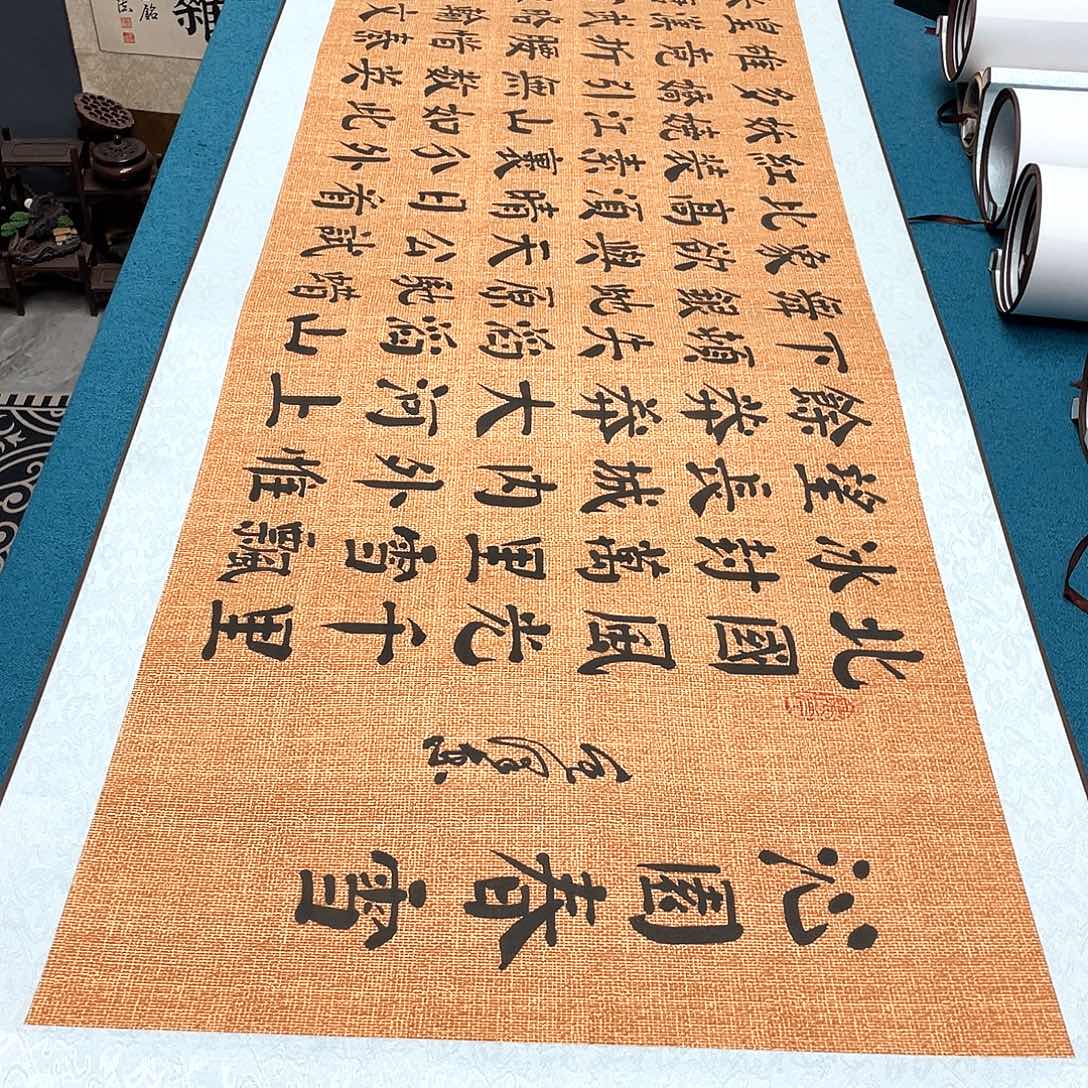 沁園春雪
北國風光千里
冰封萬里雪飄
望長城內外惟
餘莽莽大河上
下頓失滔滔山
舞銀蛇原馳蠟
象欲與天公試
比高須晴日看
紅裝素裹分外
妖嬈江山如此
多嬌引無數英
雄竟折腰惜秦
皇漢武略輸文